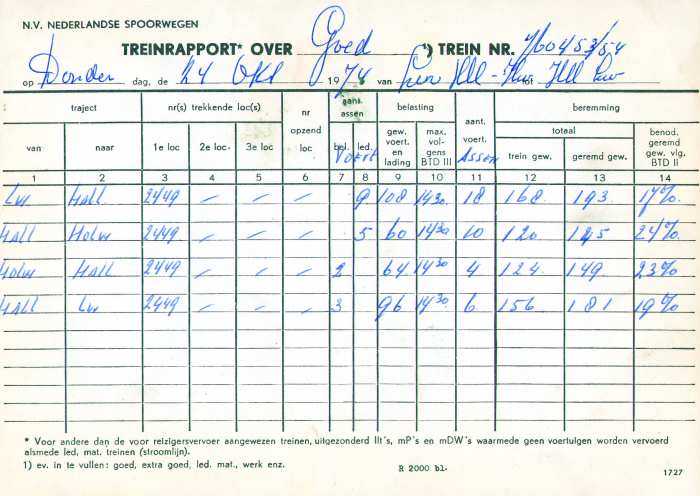 N.V. NEDERLANDSE SPOORWEGEN
TREINRAPPORT* OVER Goed ¹) TREIN NR.
op Donder dag, de 24 Okt 1974 van tot
traject nr(s) trekkende loc(s) nr opzend loc aans. assen belasting aant. voert. beremming
van naar 1e loc 2e loc 3e loc bel. led. gew. voert. en lading max. vol- gens BTD III totaal trein gew. geremd gew. benod. geremd gew. vlg. BTD II
VOERT. ASSEN
1 2 3 4 5 6 7 8 9 10 11 12 13 14
Lw HALL 2449 – – – – 9 108 1430 18 168 193 17%
HALL Holw 2449 – – – – 5 60 1430 10 120 145 24%
Holw HALL 2449 – – – – 2 64 1430 4 124 149 23%
HALL Lw 2449 – – – – 3 96 1430 6 156 181 19%
* Voor andere dan de voor reizigersvervoer aangewezen treinen, uitgezonderd llt's, mP's en mDW's waarmede geen voertuigen worden vervoerd
alsmede led. mat. treinen (stroomlijn).
1) ev. in te vullen: goed, extra goed, led. mat., werk enz.
R 2000 bl.
1727